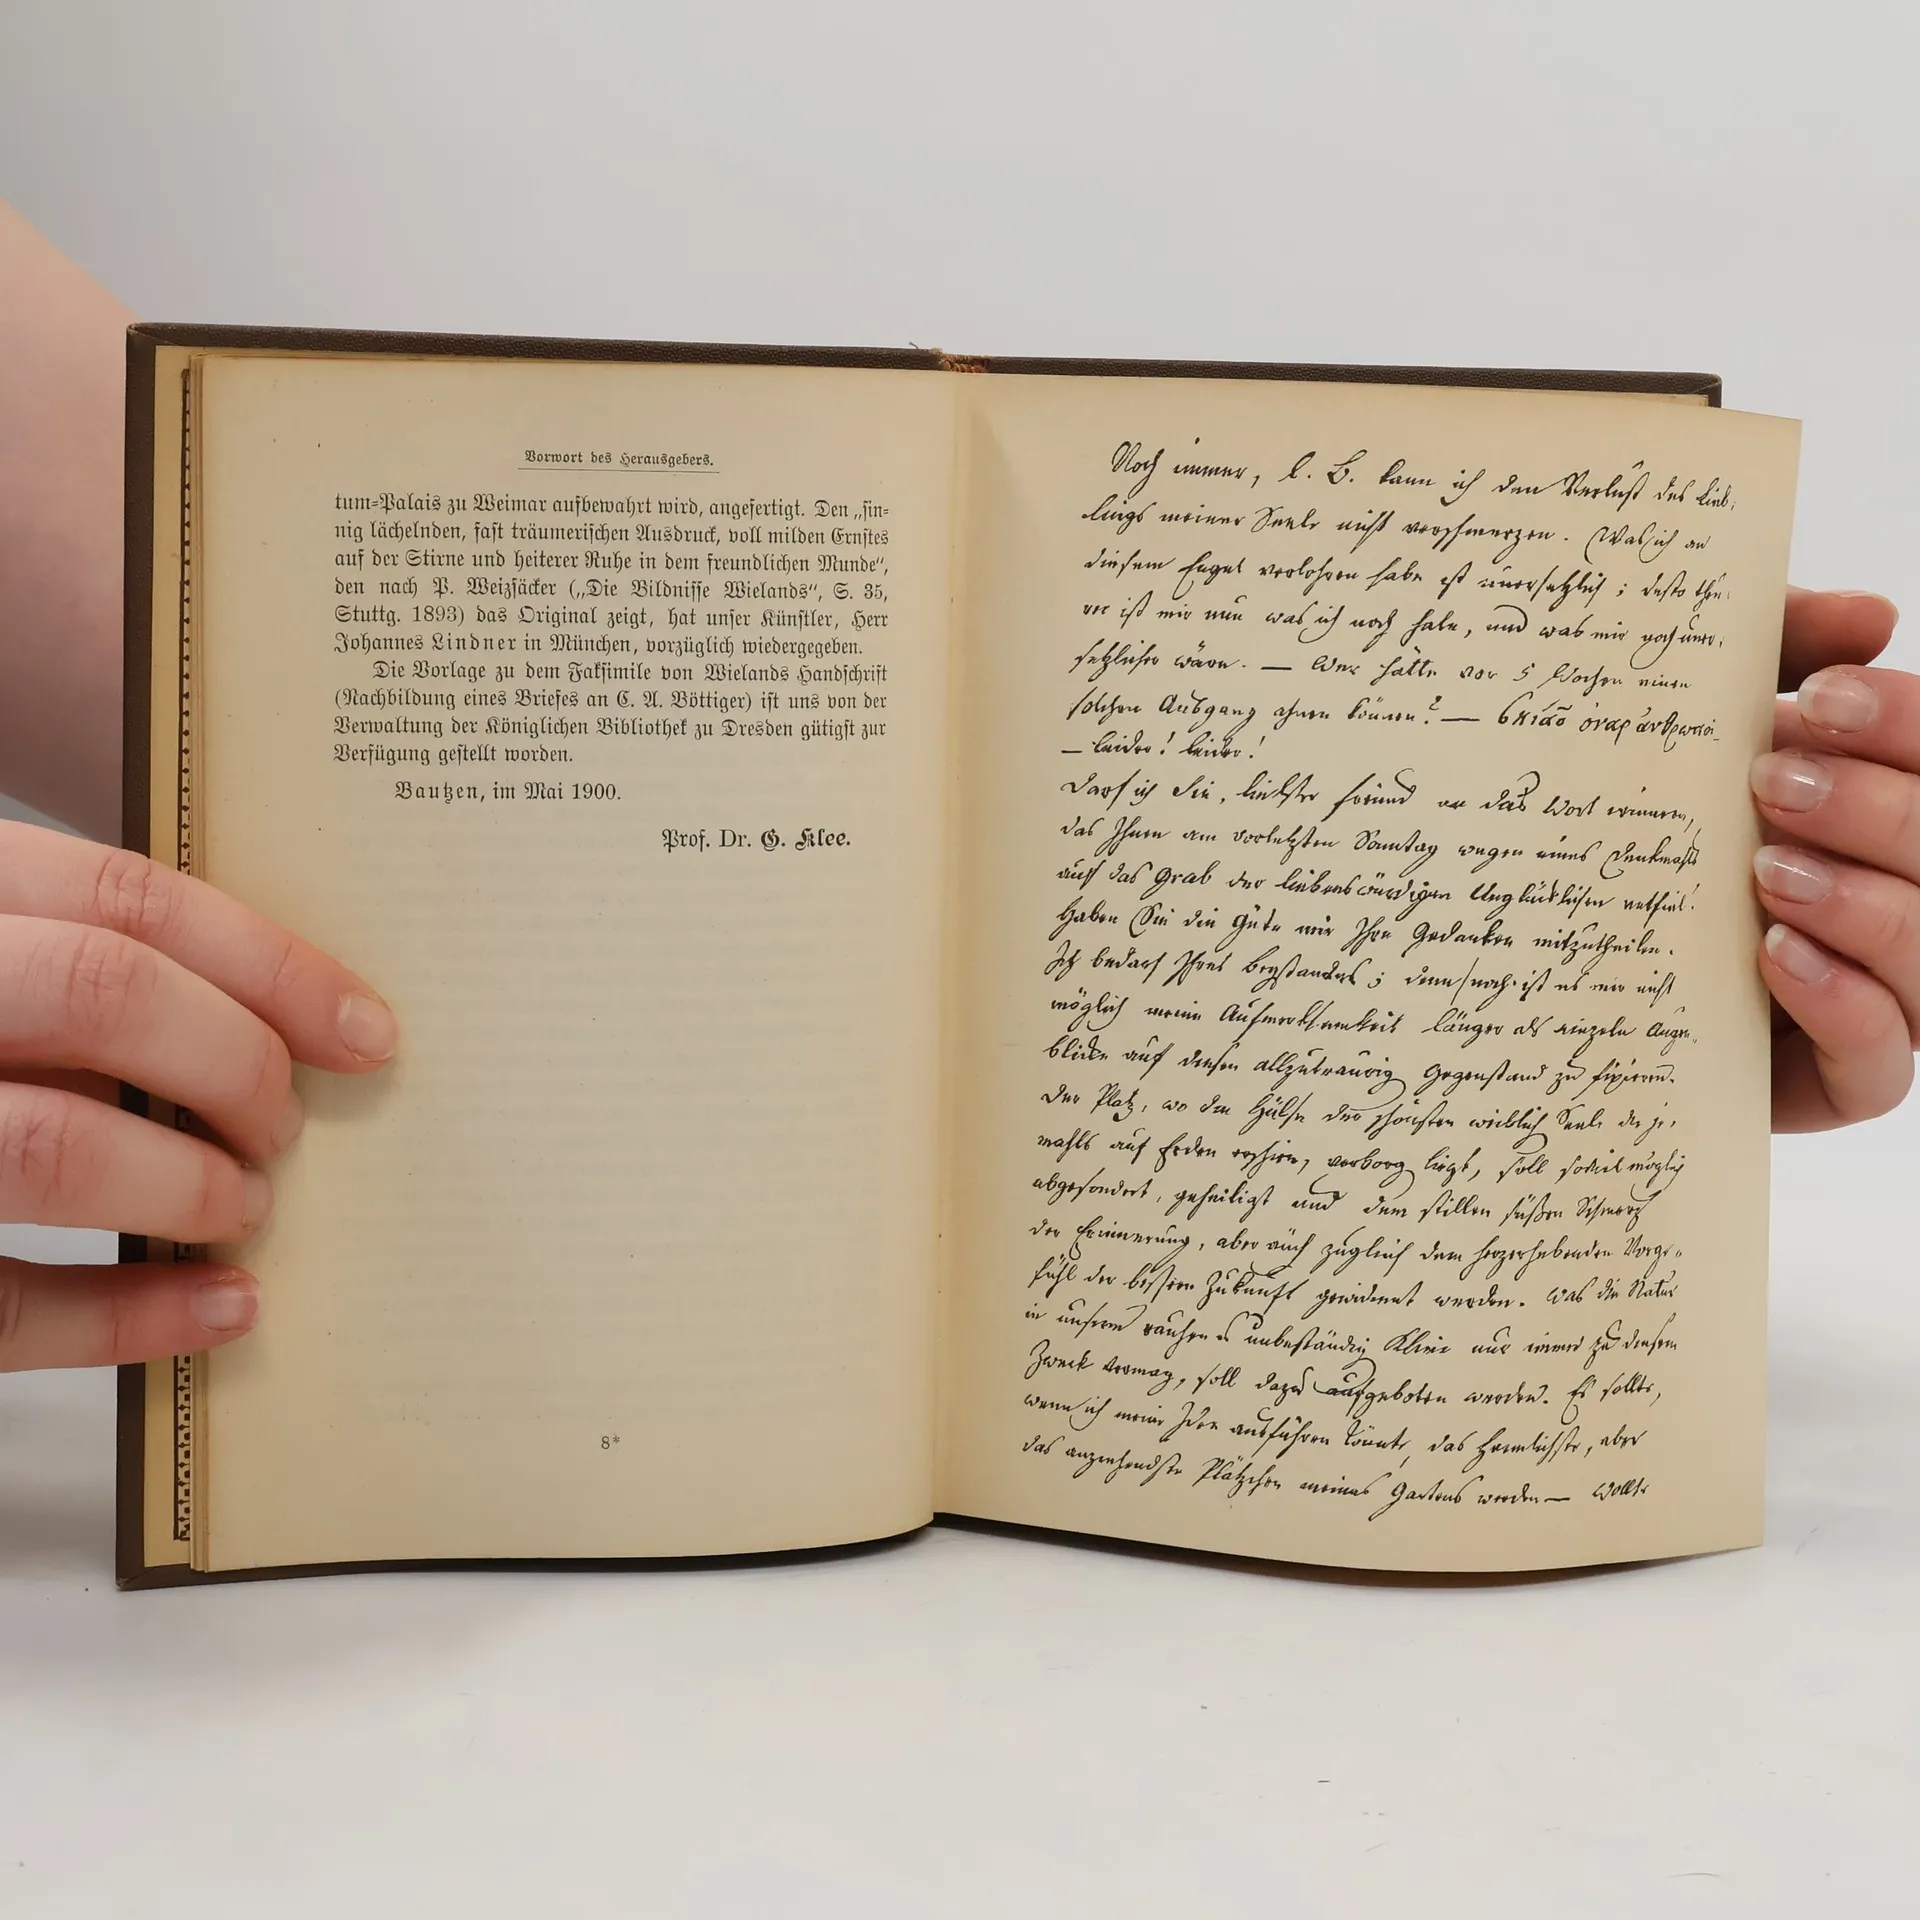 Vorwort des Herausgebers.
tum-Palais zu Weimar aufbewahrt wird, angefertigt. Den „sin-
nig lächelnden, fast träumerischen Ausdruck, voll milden Ernstes
auf der Stirne und heiterer Ruhe in dem freundlichen Munde“,
den nach P. Weizsäcker („Die Bildnisse Wielands“, S. 35,
Stuttg. 1893) das Original zeigt, hat unser Künstler, Herr
Johannes Lindner in München, vorzüglich wiedergegeben.
Die Vorlage zu dem Faksimile von Wielands Handschrift
(Nachbildung eines Briefes an C. A. Böttiger) ist uns von der
Verwaltung der Königlichen Bibliothek zu Dresden gütigst zur
Verfügung gestellt worden.
Bautzen, im Mai 1900.
Prof. Dr. G. Klee.
8*
Noch immer, l. B. kann ich den Verlust des Lieb-
lings meiner Seele nicht verschmerzen. Was ich an
diesem Engel verlohren habe ist unersetzlich; desto theu-
rer ist mir nun was ich noch habe, und was mir noch uner-
setzlicher wäre. — Wer hätte vor 5 Wochen einen
solchen Ausgang ahnen können? — σκιᾶς ὄναρ ἄνθρωποι
— leider! leider!
Darf ich Sie, liebster Freund an das Wort erinnern,
das Ihnen am vorletzten Sonntag wegen eines Denkmahls
auf das Grab der liebenswürdigen Unglücklichen entfiel.
Haben Sie die Güte mir Ihre Gedanken mitzutheilen.
Ich bedarf Ihres Beystandes; denn noch ist es mir nicht
möglich meine Aufmerksamkeit länger als einzeln Augen-
blicke auf diesen allzutraurig Gegenstand zu fixieren.
Der Platz, wo die Hülse der schönsten weiblich Seele die je-
mahls auf Erden erschien, verborg liegt, soll soviel möglich
abgesondert, geheiligt und dem stillen süßen Schmerz
der Erinnerung, aber auch zugleich dem herzerhebenden Vorge-
fühl der bessern Zukunft gewidmet werden. Was die Natur
in unserm rauhen unbeständig Klima nur immer zu diesem
Zweck vermag, soll dazu aufgeboten werden. Es sollte,
wenn ich meine Idee ausführen könnte, das heimlichste, aber
das anziehendste Plätzchen meines Gartens werden — Wollte